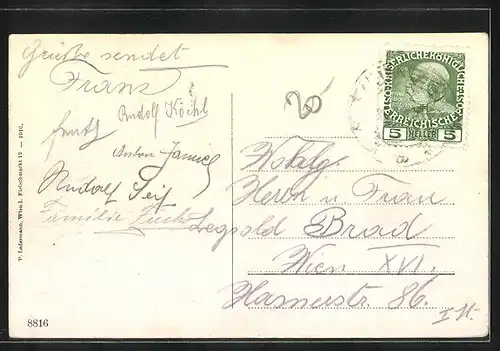 Grüße sendet
Franz
Rudolf Köchl
Anton
Rudolf Seif
Familie Fuchs
P. Ledermann, Wien I. Fleischmarkt 12 — 1910.
8816
KAISERLICHE KÖNIGLICHE ÖSTERREICHISCHE POST
5 HELLER 5
20
Wohlg.
Herrn u Frau
Leopold Brad
Wien XVI.
Hasnerstr. 86.